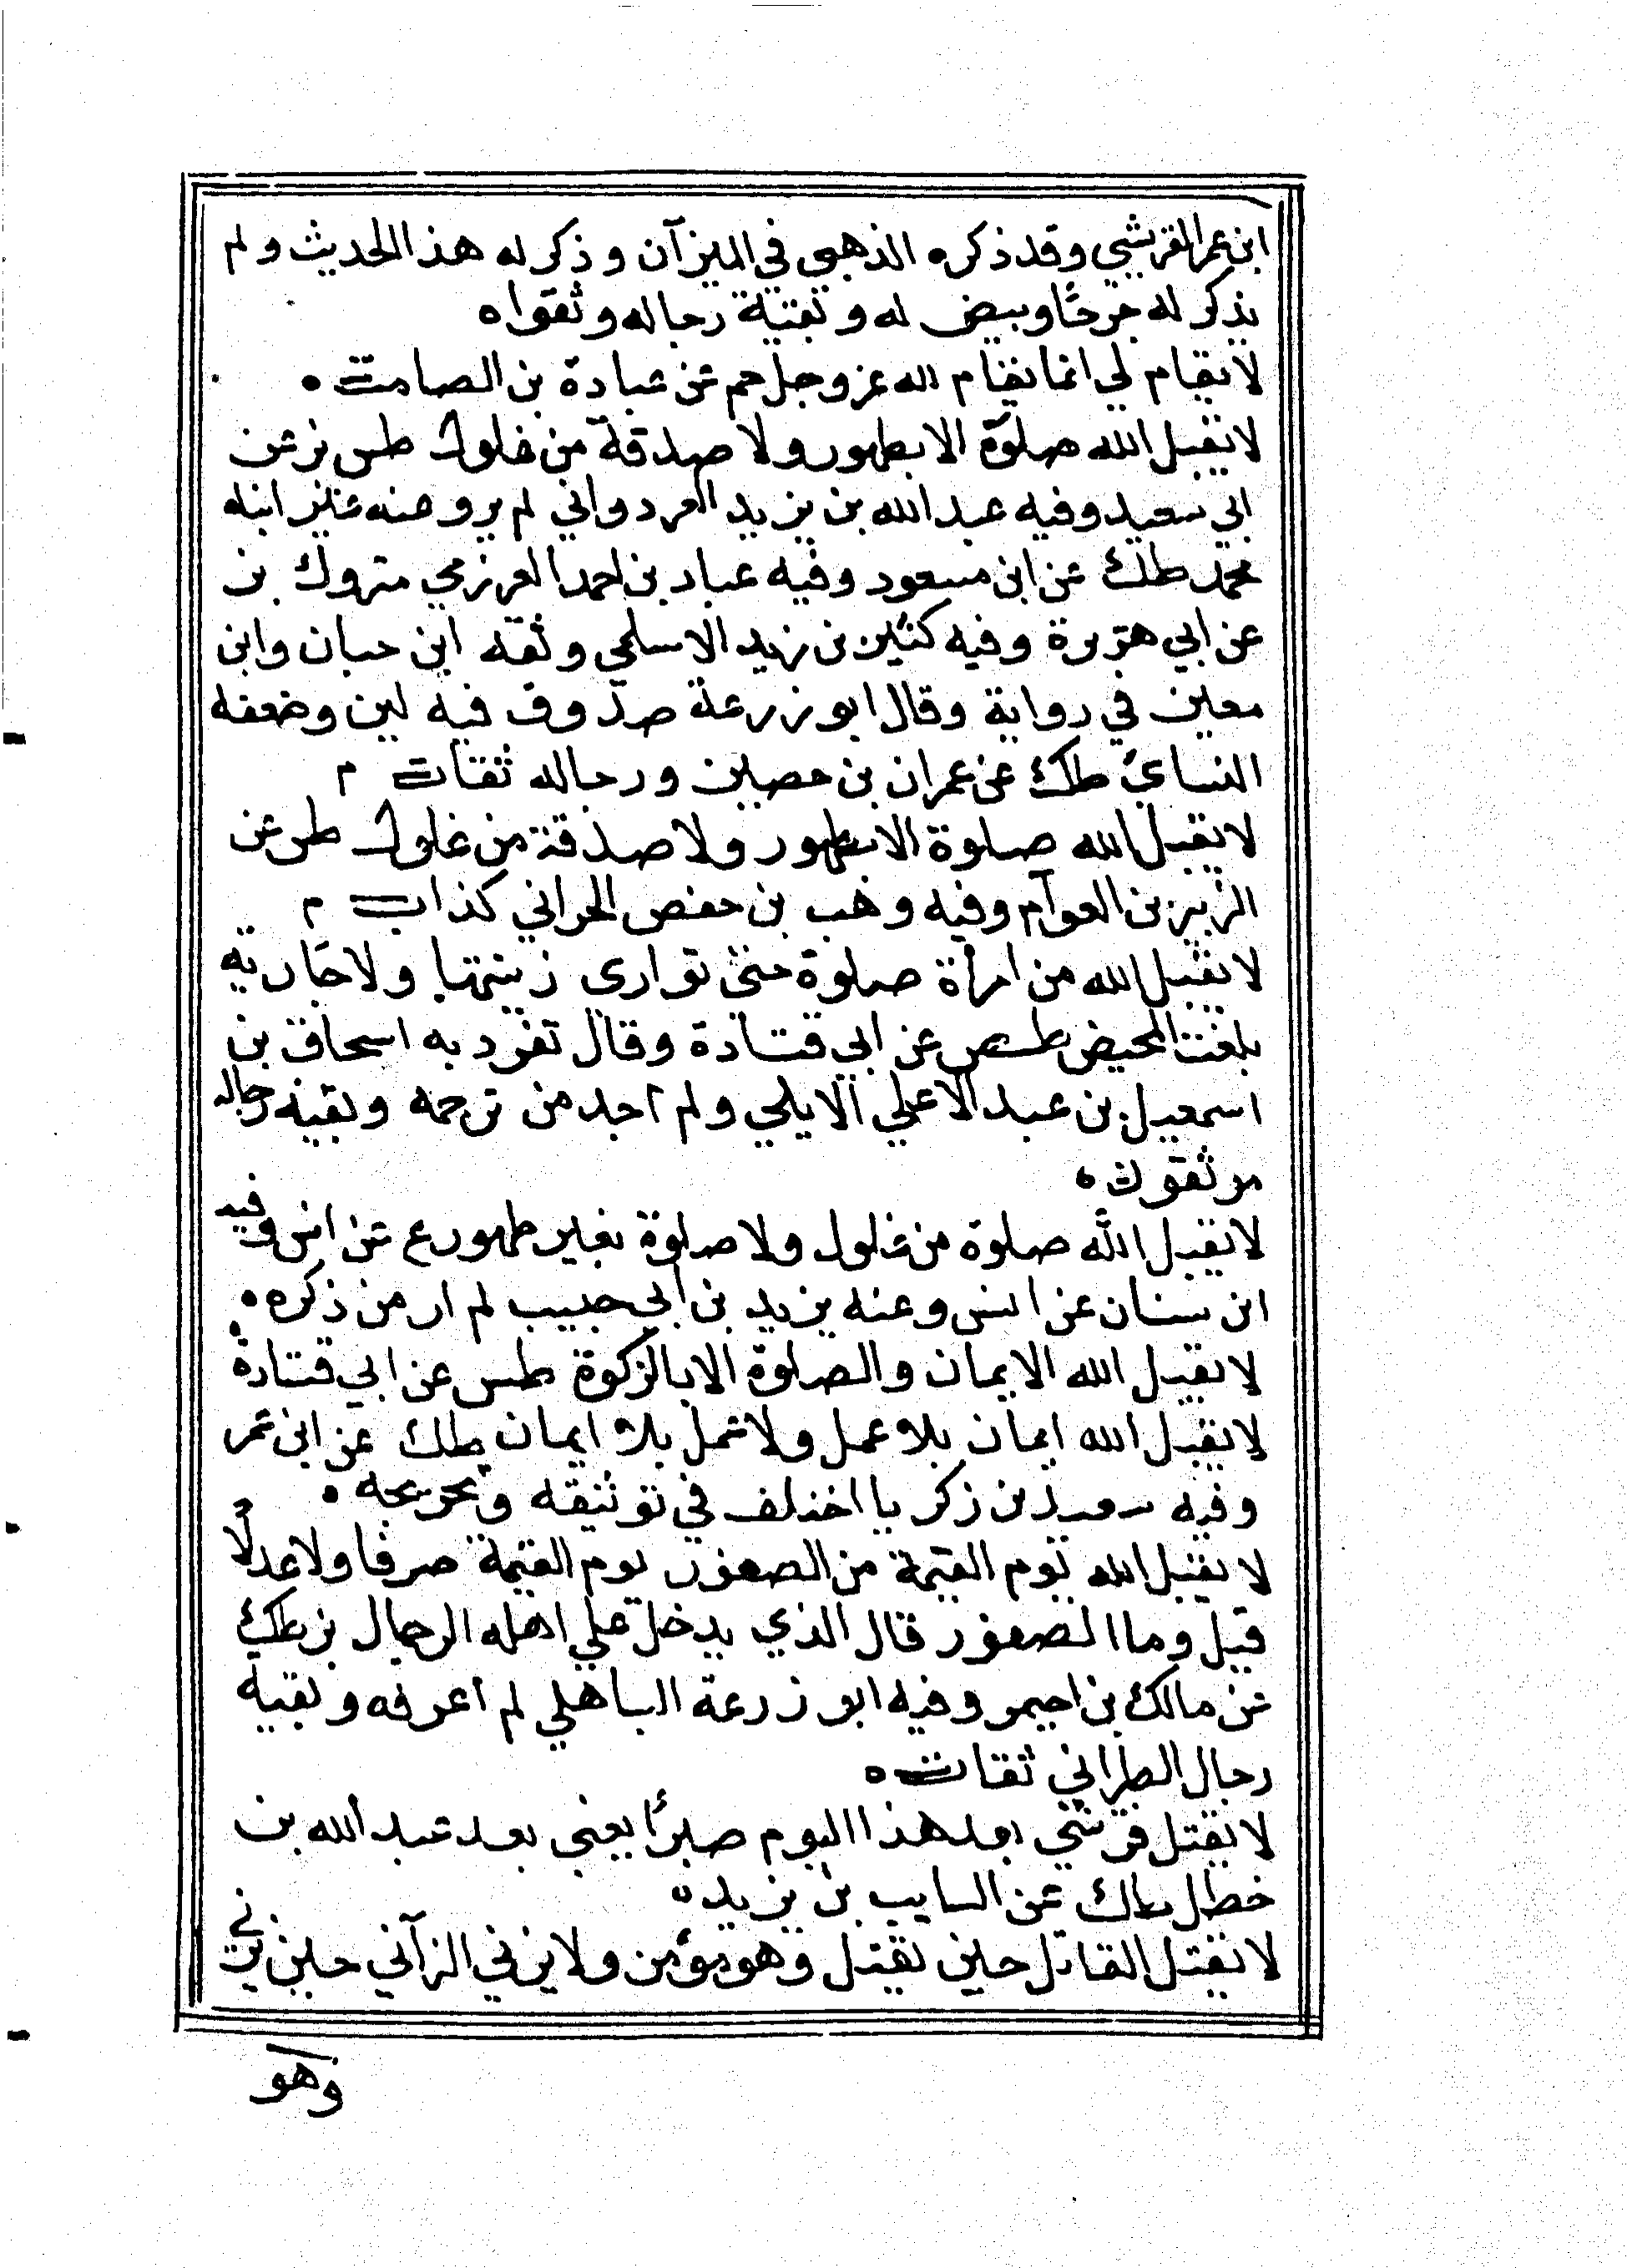 ابن عمر القرشي وقد ذكره الذهبي في الميزان وذكر له هذا الحديث ولم
يذكر له جرحًا وبيض له وبقية رجاله وثقوا ه
لا يقام لي انما يقام لله عز وجل حم عن عبادة بن الصامت ه
لا يقبل الله صلوة الا بطهور ولا صدقة من غلول طس بز عن
ابي سعيد وفيه عبد الله بن يزيد القردواني لم يرو عنه غير ابنه
محمد طك عن ابن مسعود وفيه عباد بن احمد العرزمي متروك بز
عن ابي هريرة وفيه كثير بن زيد الاسلمي وثقه ابن حبان وابن
معين في رواية وقال ابو زرعة صدوق فيه لين وضعفه
النسايئ طك عن عمران بن حصين ورجاله ثقات م
لا يقبل الله صلوة الا بطهور ولا صدقة من غلول طس عن
الزبير بن العوام وفيه وهب بن حفص الحراني كذاب م
لا يقبل الله من امرأة صلوة حتى تواري زينتها ولا جارية
بلغت المحيض طسص عن ابي قتادة وقال تفرد به اسحاق بن
اسمعيل بن عبد الاعلي الايلي ولم اجد من ترجمه وبقية رجاله
موثقون ه
لا يقبل الله صلوة من غلول ولا صلوة بغير طهور ع عن انس وفيه
ابن سنان عن انس وعنه يزيد بن ابي حبيب لم ار من ذكره ه
لا يقبل الله الايمان والصلوة الا بالزكوة طس عن ابي قتادة
لا يقبل الله ايمان بلا عمل ولا عمل بلا ايمان طك عن ابن عمر
وفيه سعيد بن زكريا اختلف في توثيقه وتجريحه ه
لا يقبل الله يوم القيمة من الصعفور يوم القيمة صرفا ولا عدلًا
قيل وما الصعفور قال الذي يدخل علي اهله الرجال بز طك
عن مالك بن احيمر وفيه ابو زرعة الباهلي لم اعرفه وبقية
رجال الطبراني ثقات ه
لا يقتل قرشي بعد هذا اليوم صبرًا يعني بعد عبد الله بن
خطل طك عن السايب بن يزيد ه
لا يقتل القاتل حين يقتل وهو مؤمن ولا يزني الزاني حين يزني
وهو